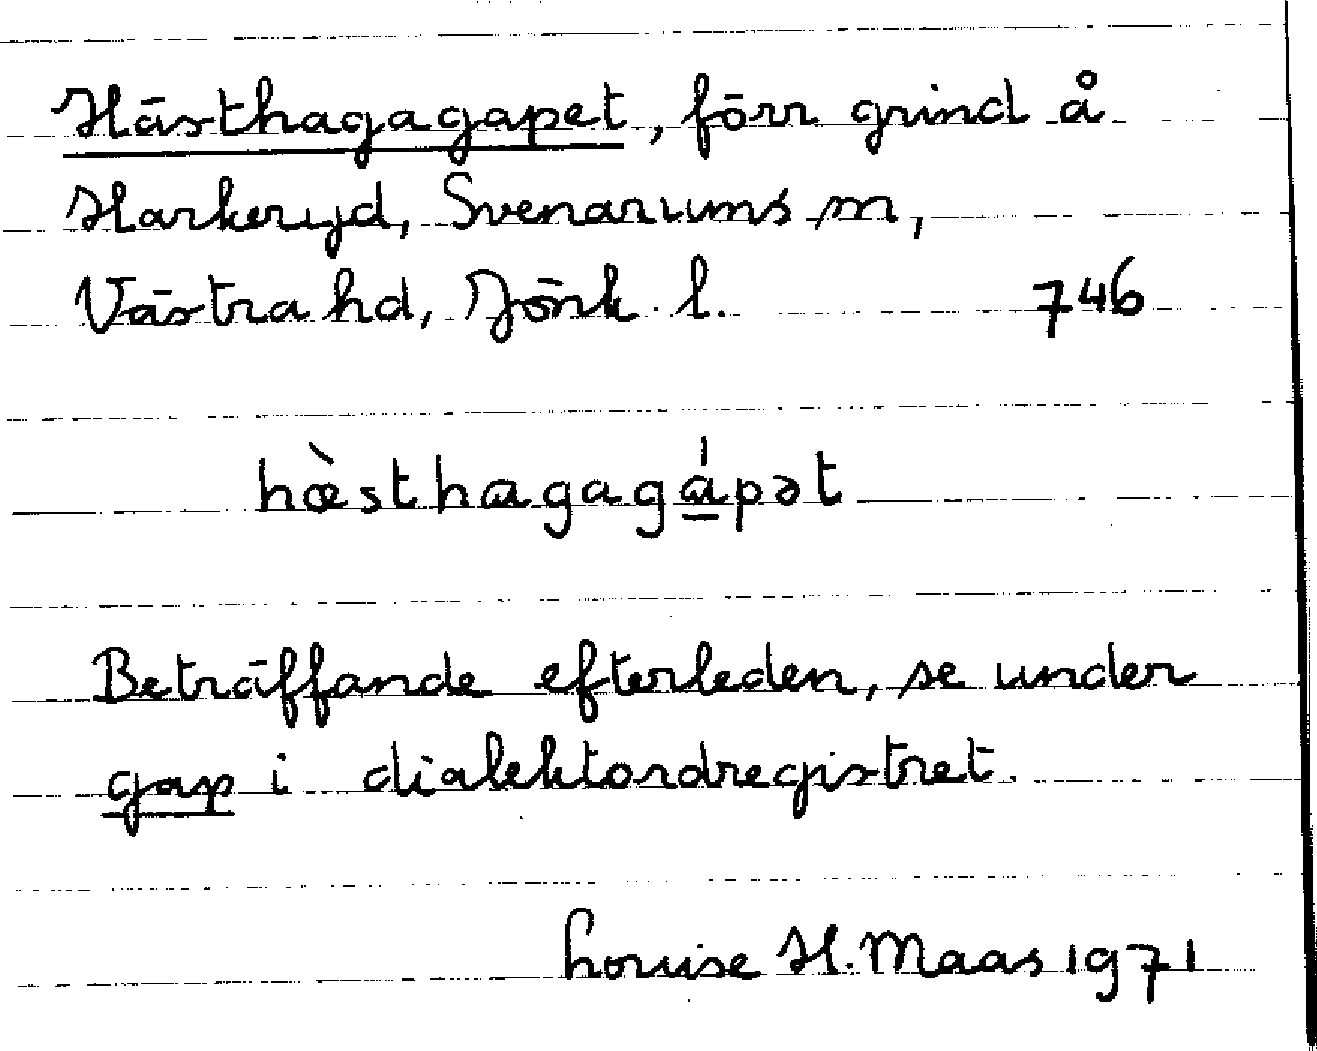 Hästhagagapet, förr grind å
Harkeryd, Svenarums sn,
Västra hd, Jönk. l. 746
hœ̀sthagagá̱pət
Beträffande efterleden, se under
gap i dialektordregistret.
Louise H. Maas 1971